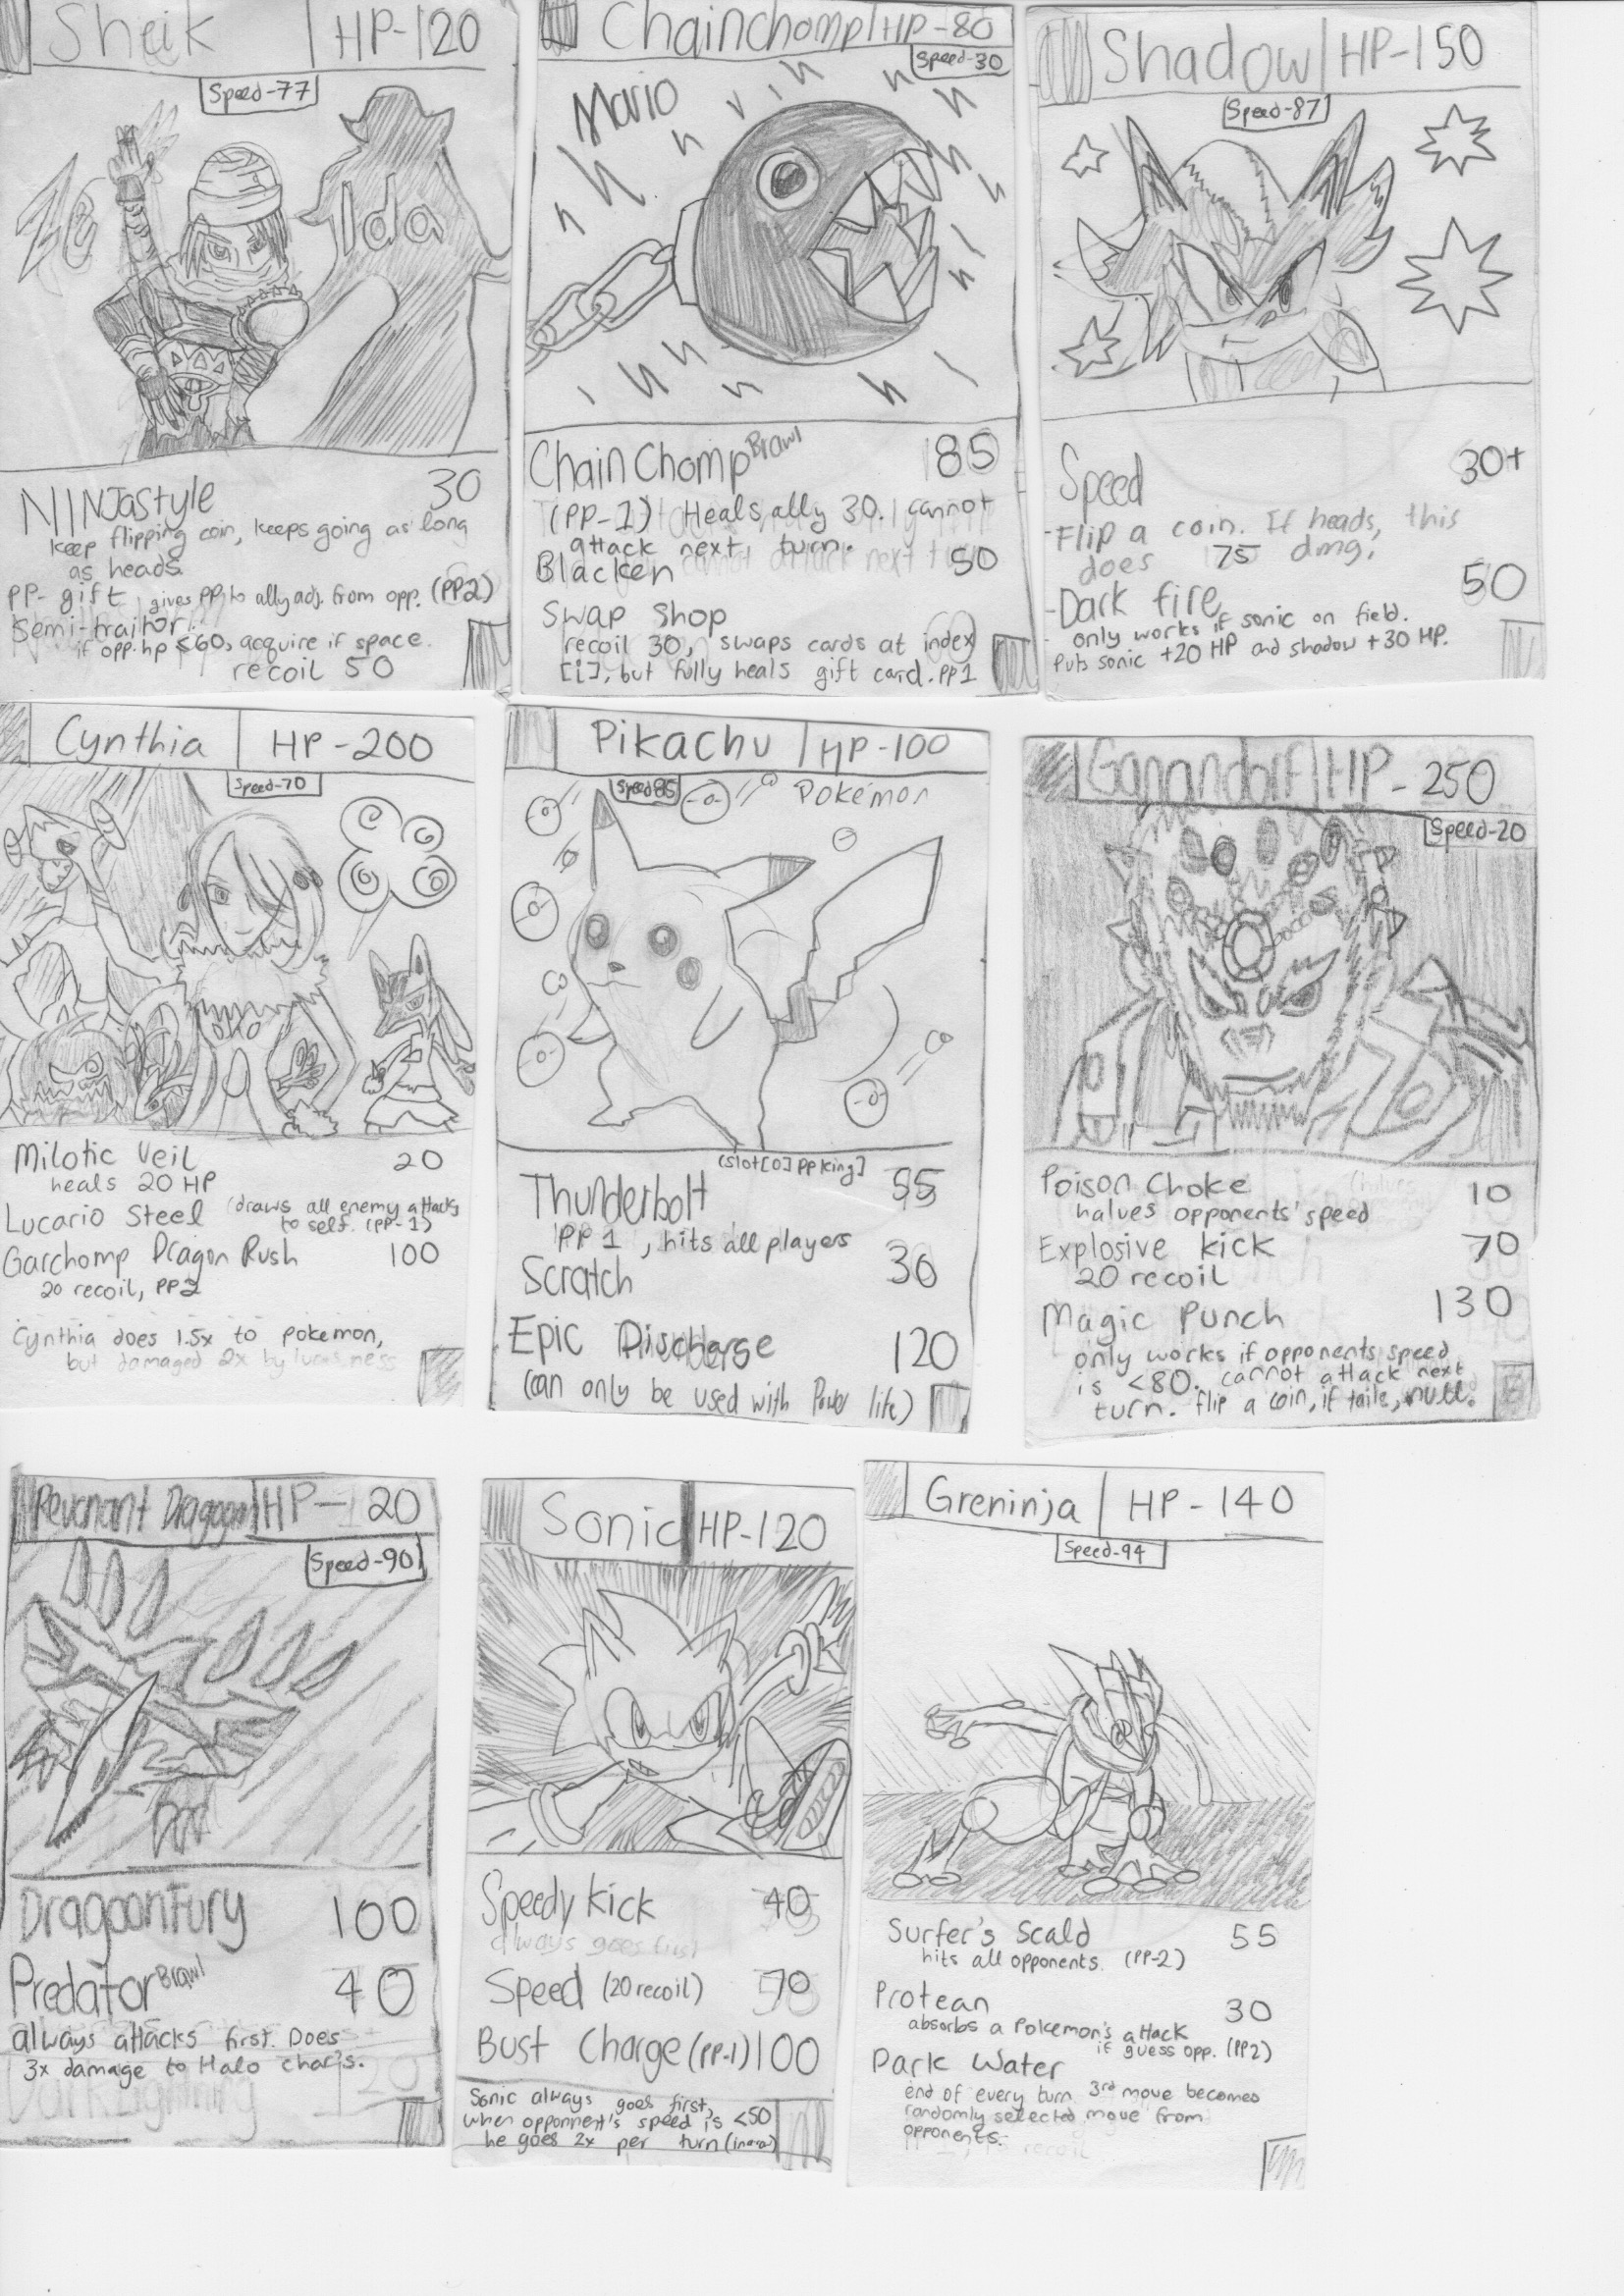 Sheik HP-120
Speed-77
Ze
lda
NINJastyle 30
keep flipping coin, keeps going as long
as heads
PP- gift, gives PP to ally adj. from opp. (PP2)
Semi-traitor
if opp. hp <60, acquire if space.
recoil 50
Chainchomp HP-80
Speed-30
Mario
Chain Chomp Brawl 85
(PP-1) Heals ally 30. cannot
attack next turn.
Blacken 50
Swap Shop
recoil 30, swaps cards at index
[i], but fully heals gift card. PP1
Shadow HP-150
Speed-87
Speed 30+
-Flip a coin. If heads, this
does 75 dmg.
-Dark fire 50
- only works if sonic on field.
Puts sonic +20 HP and shadow +30 HP.
Cynthia HP-200
Speed-70
Milotic Veil 20
heals 20 HP
Lucario Steel (draws all enemy attacks
to self. (PP-1)
Garchomp Dragon Rush 100
20 recoil, PP2
Cynthia does 1.5x to pokemon,
but damaged 2x by
Pikachu HP-100
Speed 85
Pokémon
(slot[0] PP king]
Thunderbolt 55
PP 1, hits all players
Scratch 30
Epic Discharge 120
(can only be used with Power life)
Ganandorf HP-250
Speed-20
Poison Choke 10
halves opponents' speed
Explosive kick 70
20 recoil
Magic Punch 130
only works if opponents speed
is <80. cannot attack next
turn. flip a coin, if tails, null.
Revenant Dragoon HP-120
Speed-90
Dragoon Fury 100
Predator Brawl 40
always attacks first. Does
3x damage to Halo char's.
Dark Lightning 120
Sonic HP-120
Speedy Kick 40
always goes first
Speed (20 recoil) 70
Bust Charge (PP-1) 100
Sonic always goes first,
when opponent's speed is <50
he goes 2x per turn
Greninja HP-140
Speed-94
Surfer's Scald 55
hits all opponents. (PP-2)
Protean 30
absorbs a Pokemon's attack
if guess opp. (PP2)
Dark Water
end of every turn 3rd move becomes
randomly selected move from
opponents.
recoil